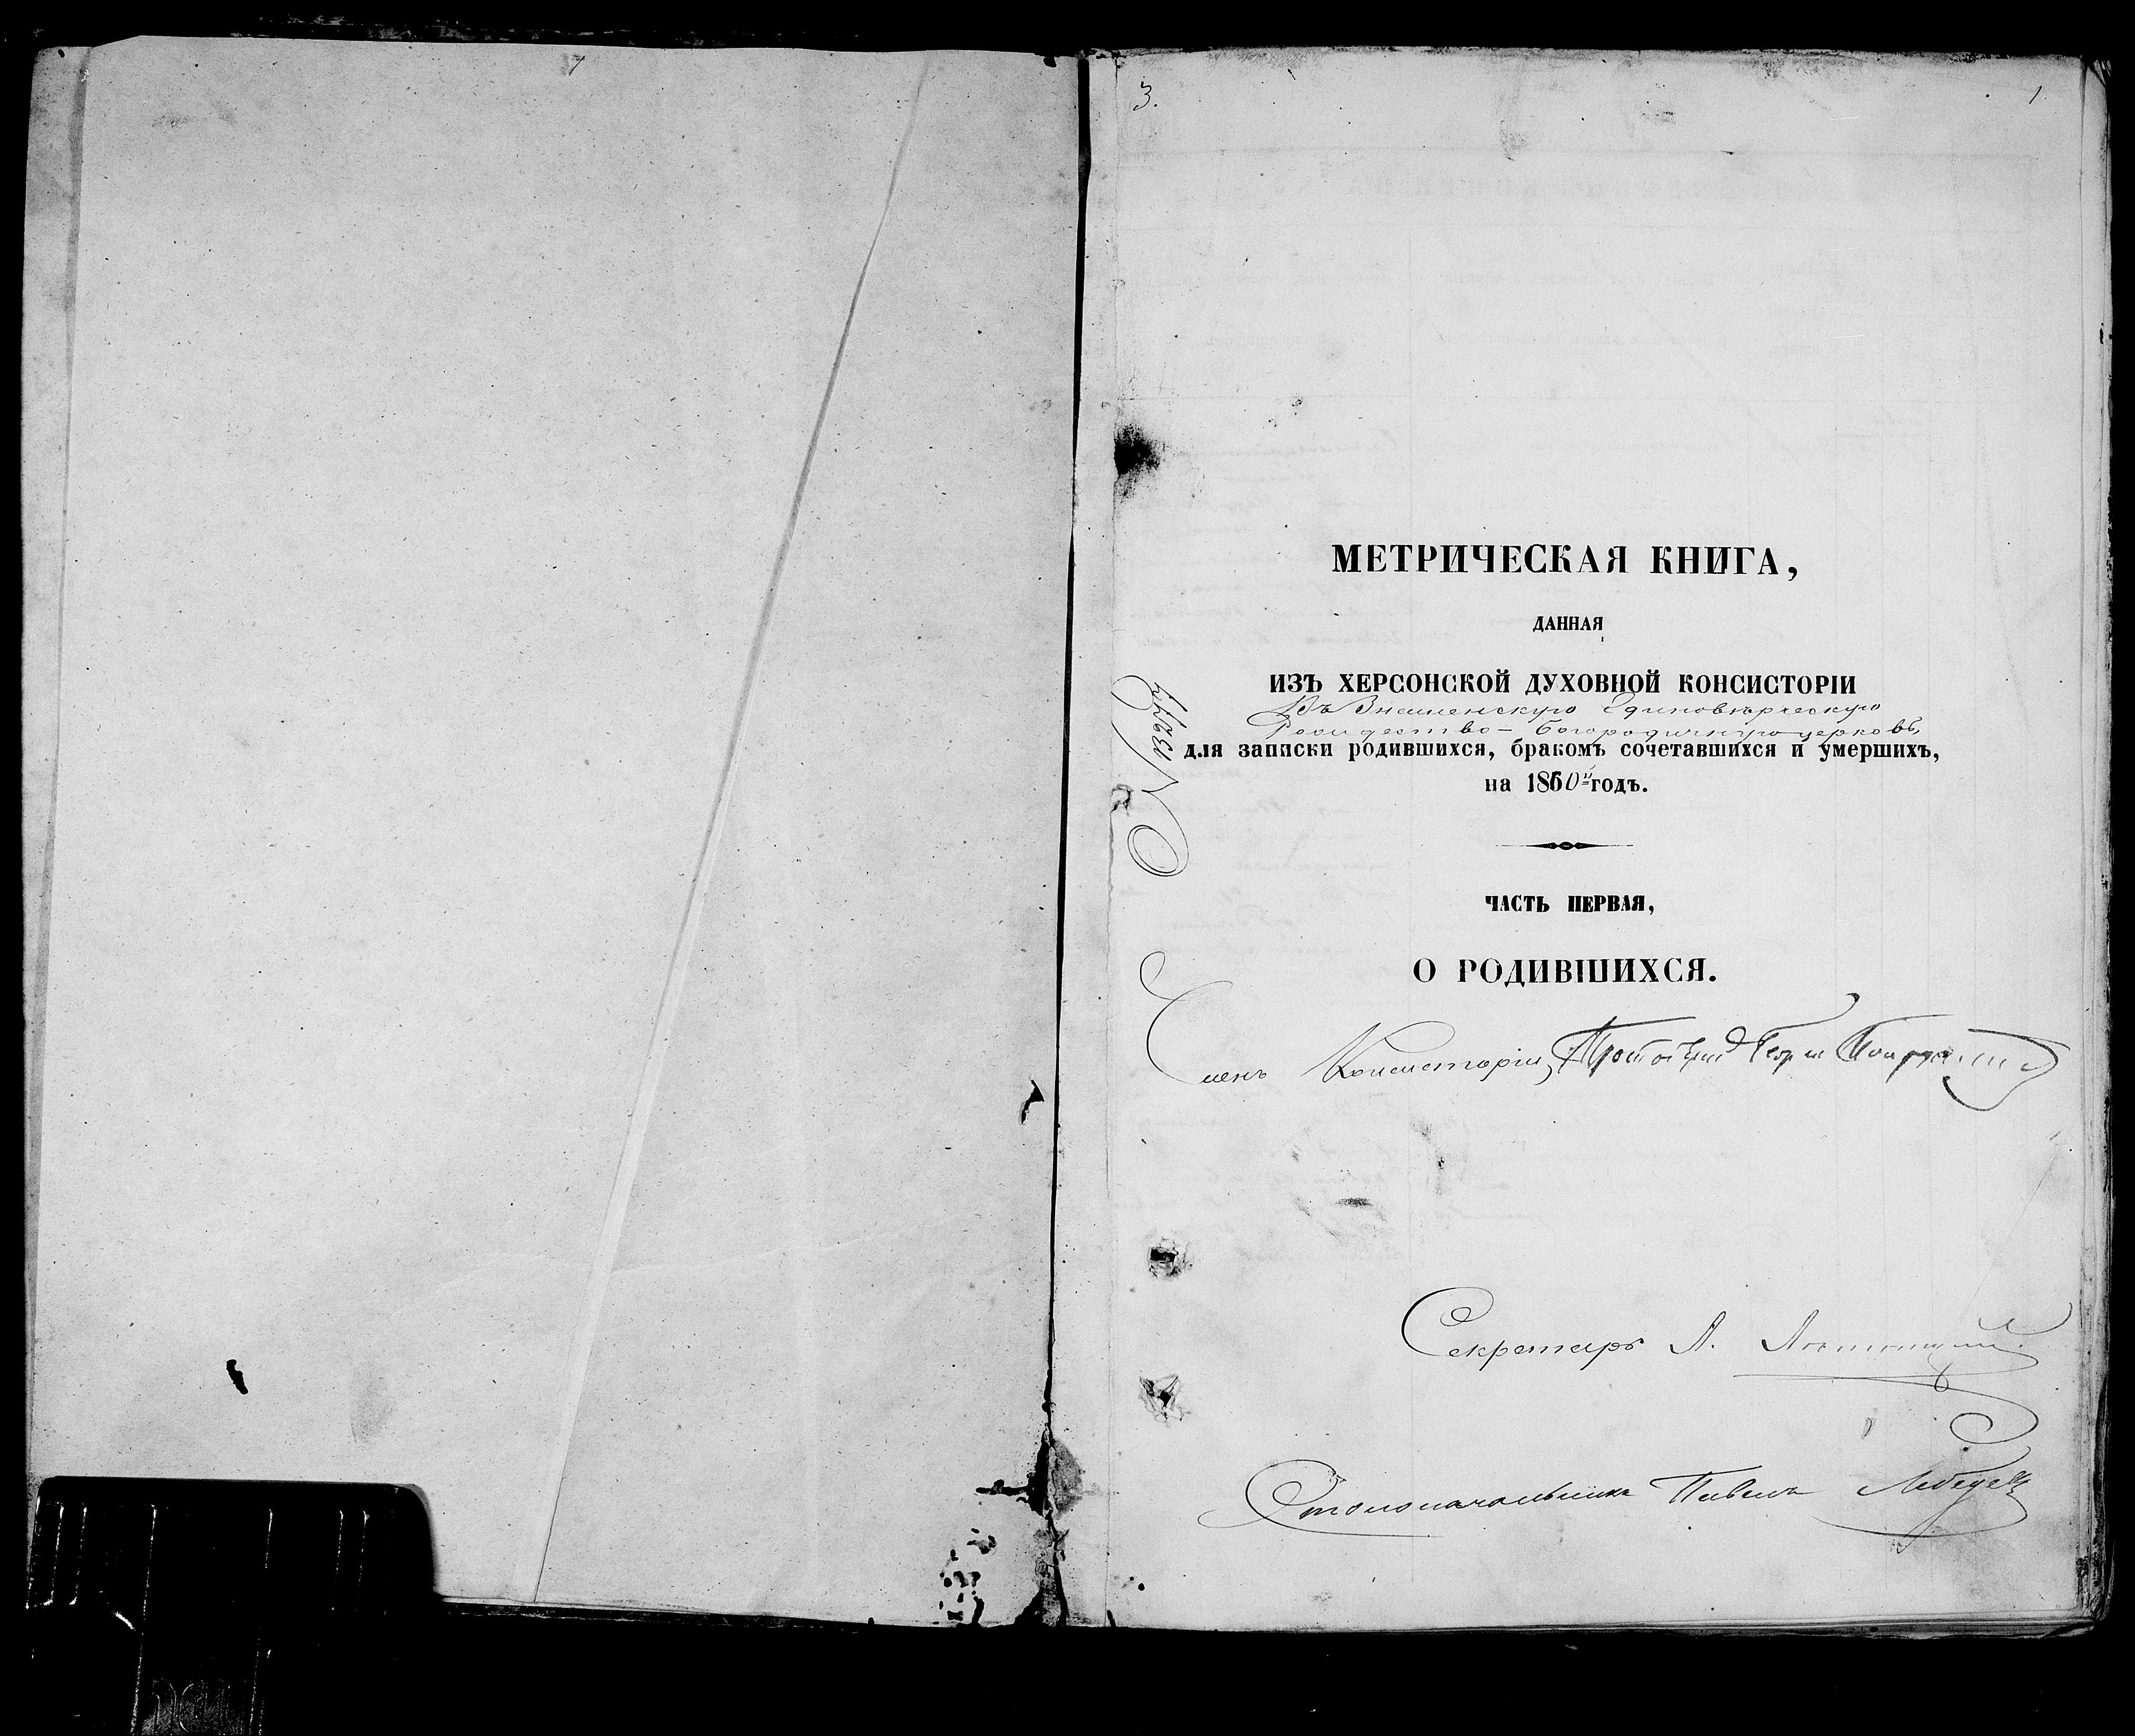 3.
1
МЕТРИЧЕСКАЯ КНИГА,
ДАННАЯ
ИЗЪ ХЕРСОНСКОЙ ДУХОВНОЙ КОНСИСТОРІИ
Въ Знаменскую Единовѣрческую
Рождество-Богородичную церковь
для записки родившихся, бракомъ сочетавшихся и умершихъ,
на 1860й годъ.
ЧАСТЬ ПЕРВАЯ,
О РОДИВШИХСЯ.
Членъ Консисторіи, Протоіерей
Секретарь А.
Столоначальникъ Павелъ